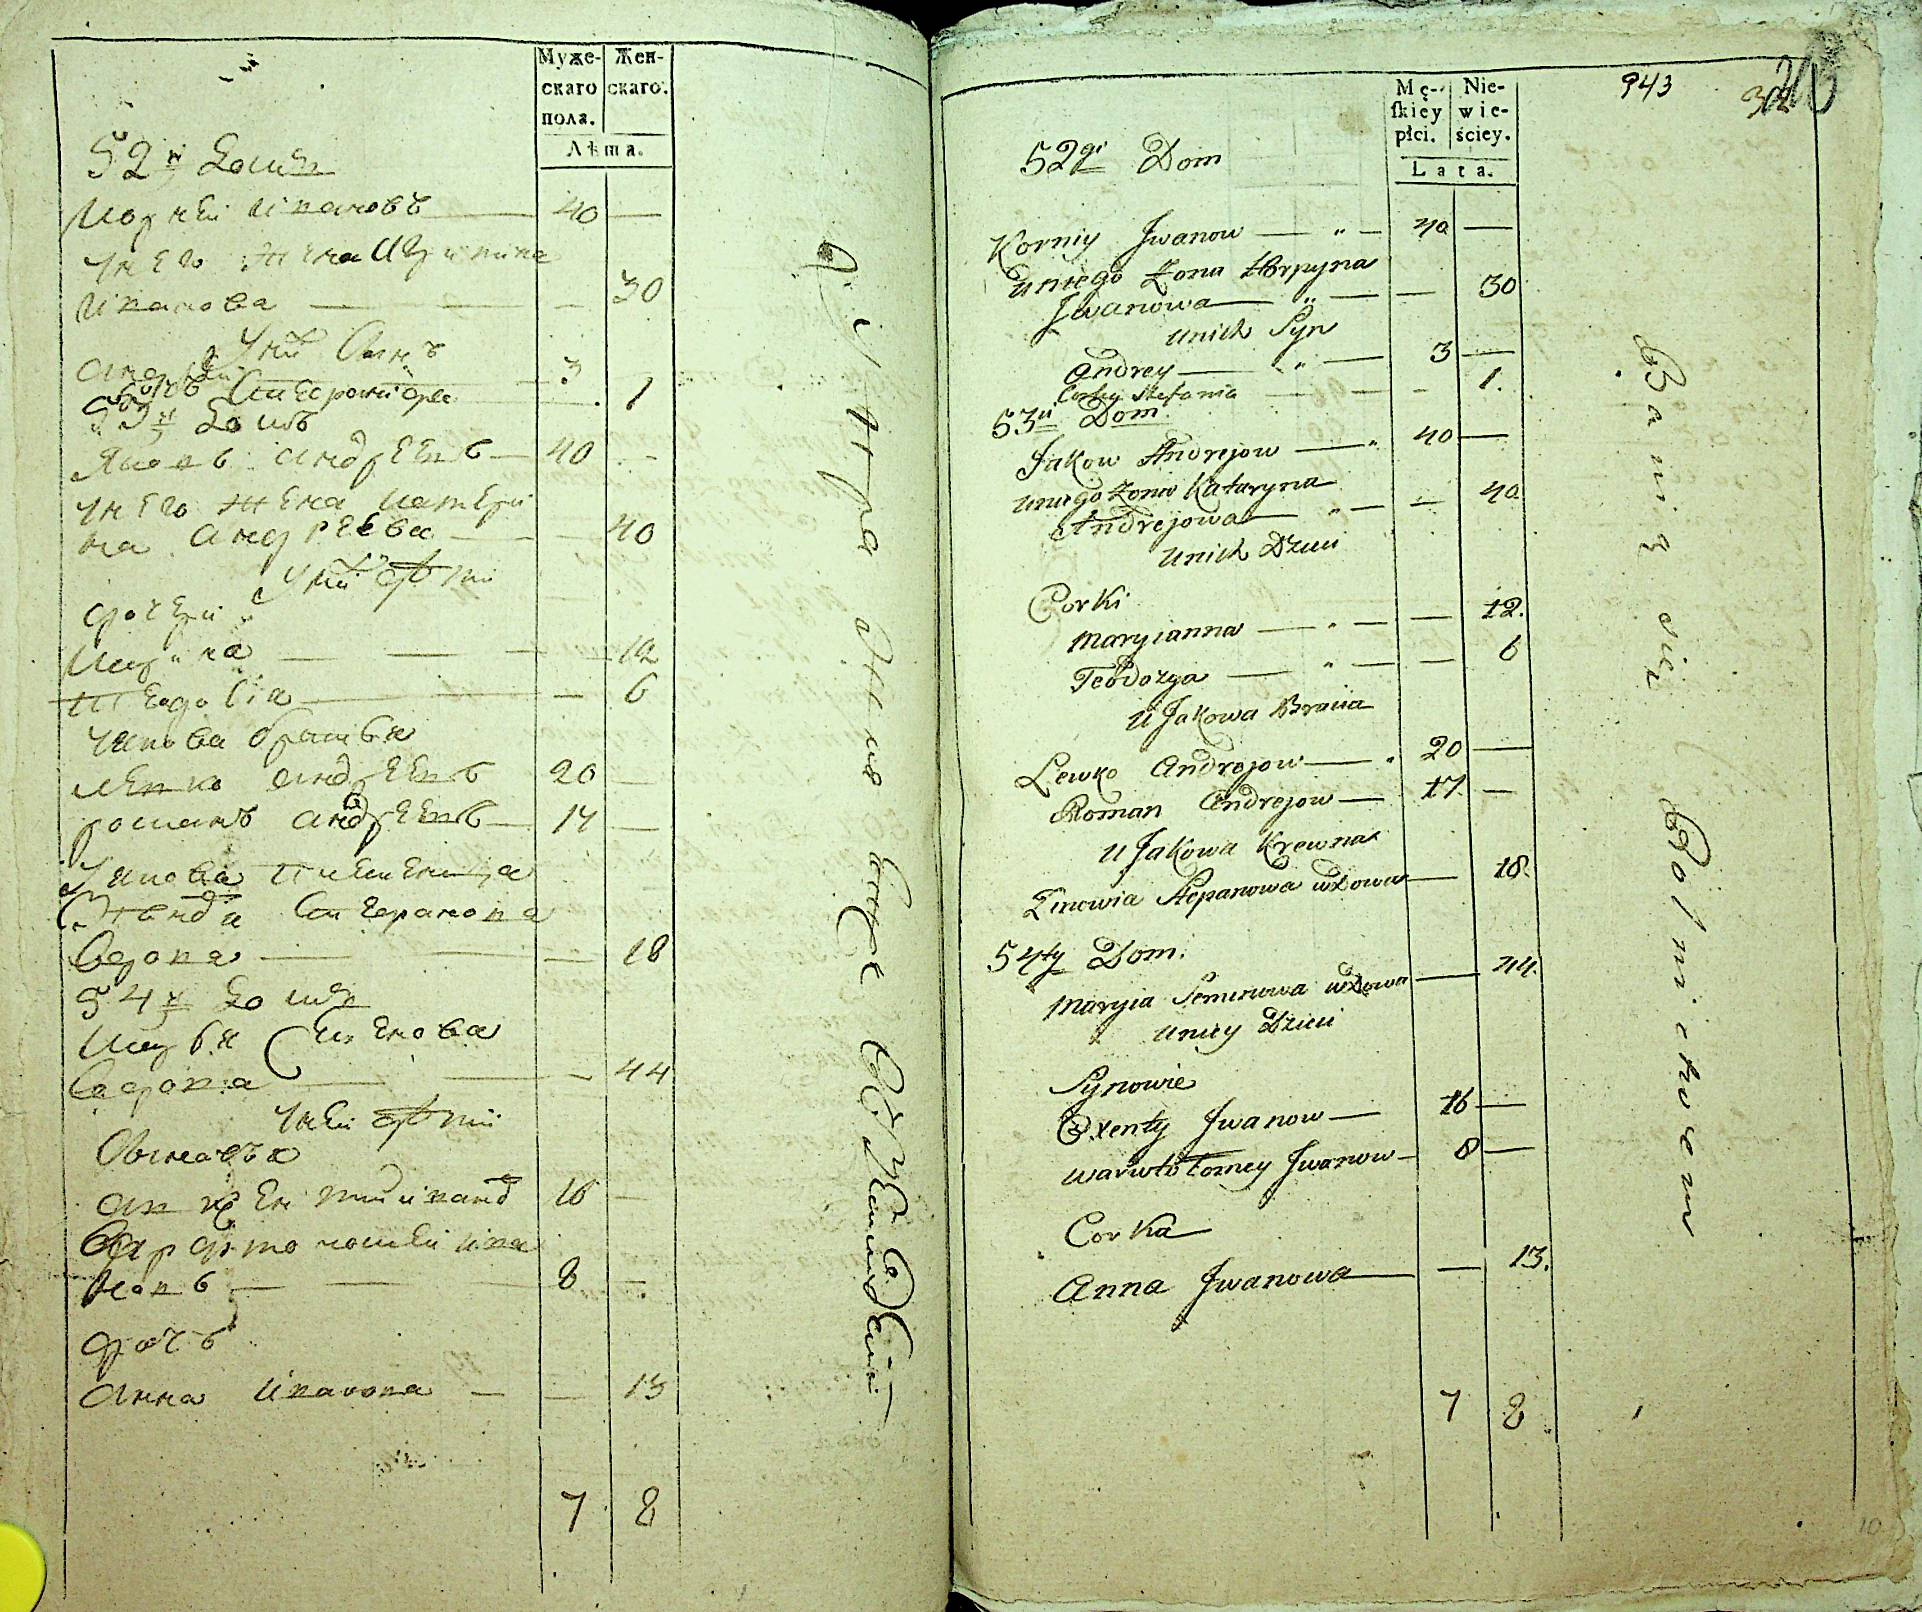 Муже-
скаго
пола.
Жен-
скаго.
Лѣта.
52й Домъ
Корней Ивановъ 40 —
у него жена Агрипина
Иванова — 30
У них Сынъ
Андрей 3
дочь Стефанида 1
53й Домъ
Яковъ Андреевъ 40 —
у него жена Катери
на Андреева — 40
У них дѣти
дочери
Марина — 12
Феодосiя — 6
Якова братья
Левко Андреевъ 20 —
романъ Андреевъ 17 —
Якова племенница
Степанова
вдова — 18
54й Домъ
Марья Семенова
вдова — 44
у ней дѣти
Сыновья
Авксентий Иванов 16 —
Варфоломей Ива
новъ 8 —
дочь
Анна Иванова — 13
7 8
Mę-
ſkiey
płci.
Nie-
wie-
ściey.
Lata.
943
52gi Dom
Korniy Jwanow — " — 40 —
uniego Żona Horpyna
Jwanowa — " — — 30
unich Syn
Andrey — " — 3 —
Corka Stefania — — 1.
53ci Dom
Jakow Andrejow — " 40 —
uniego Żona Kataryna
Andrejowa — " — — 40
unich Dzieci
Corki
Maryianna — " — — 12.
Teodozya — " — — 6
u Jakowa Bracia
Lewko Andrejow — " 20 —
Roman Andrejow — 17 —
u Jakowa Krewna
Zinowia Stepanowa wdowa — 18.
54ty Dom.
Maryia Semenowa wdowa — 44.
uniey Dzieci
Synowie
Oxenty Jwanow — 16 —
Warwołomey Jwanow — 8 —
Corka
Anna Jwanowa — — 13.
7 8
Bawią się Rolnictwem
10